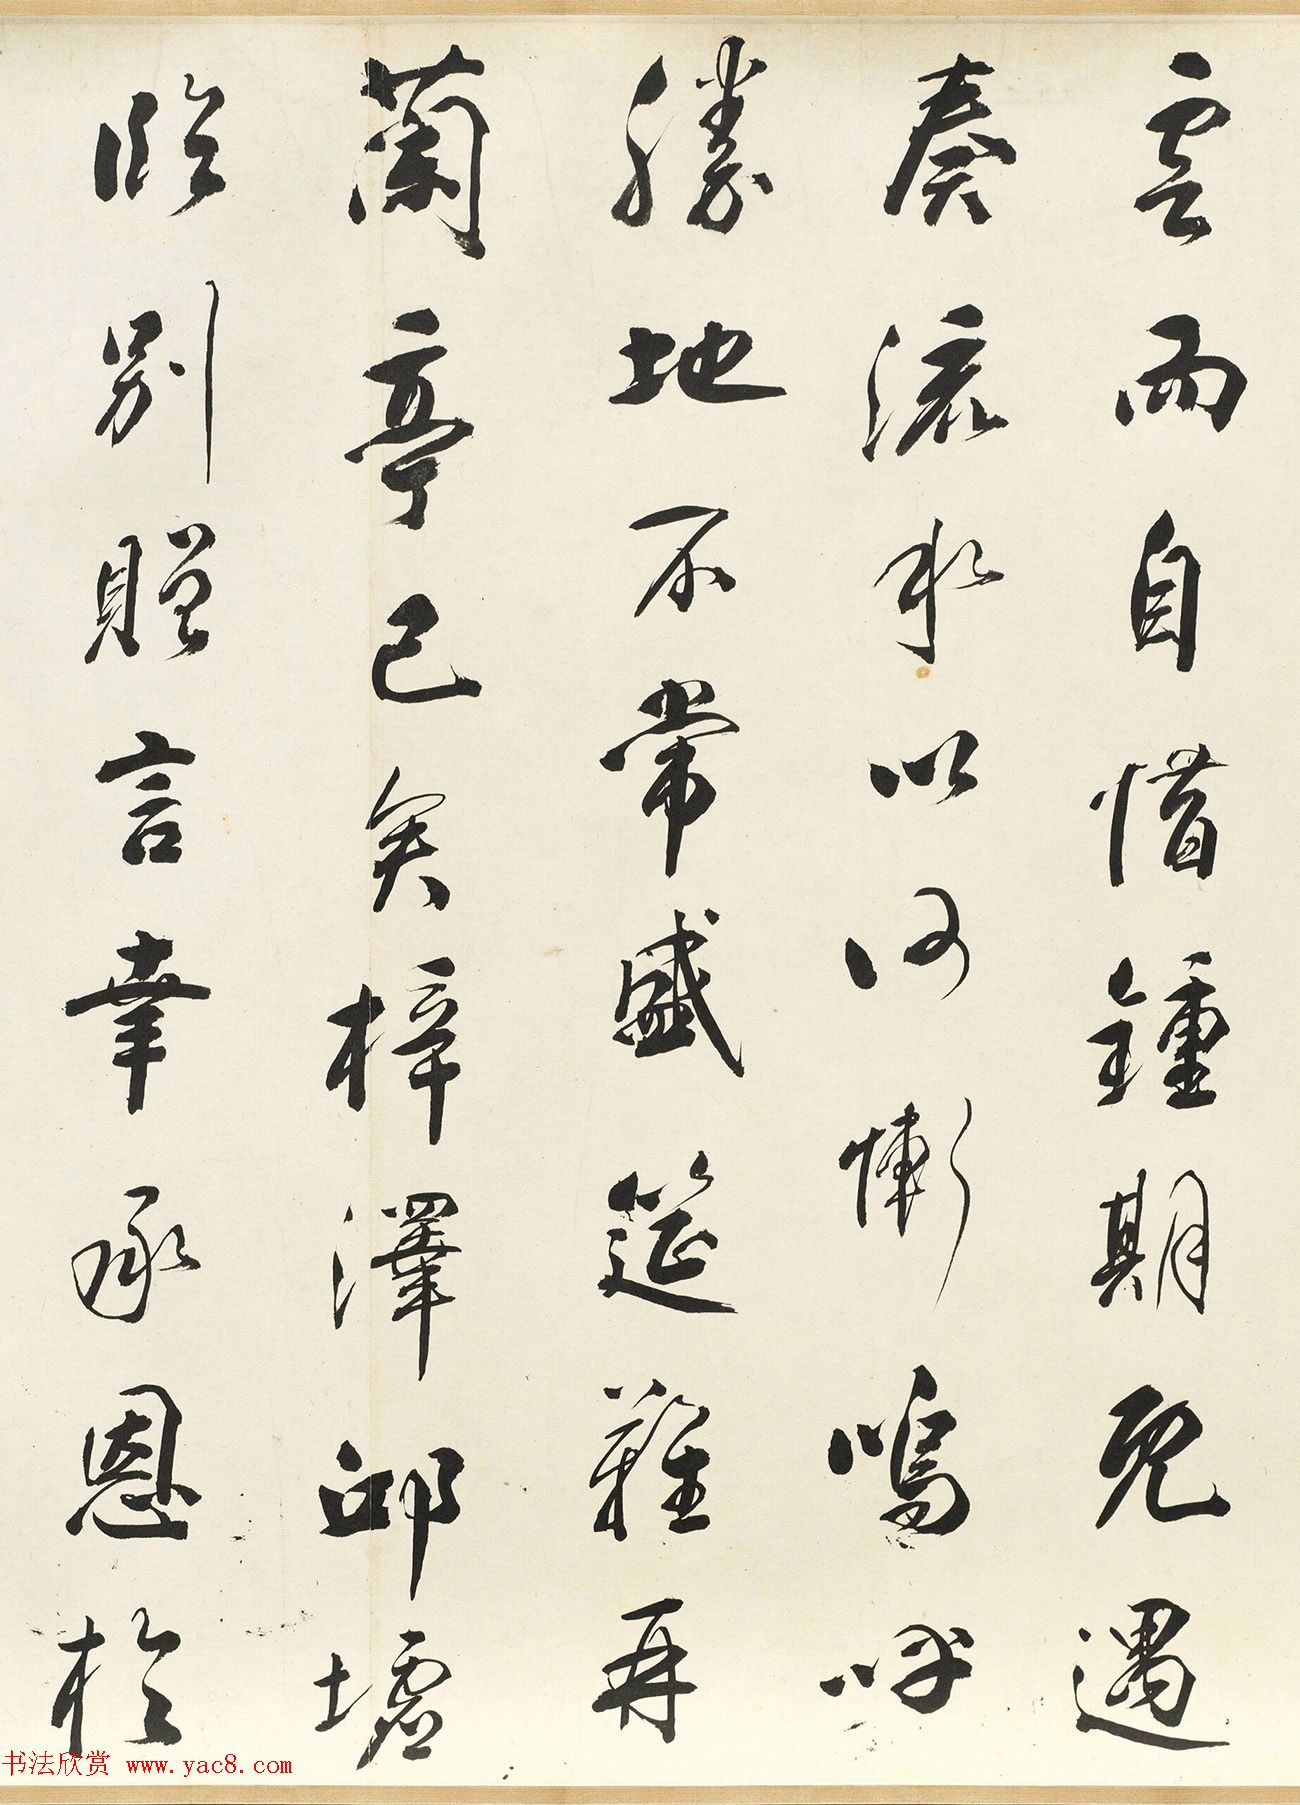 雲而自惜鍾期既遇
奏流水以何慚嗚呼
勝地不常盛筵難再
蘭亭已矣梓澤邱墟
臨別贈言幸承恩於
书法欣赏 www.yac8.com